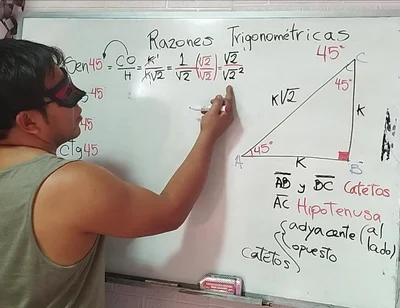 Razones Trigonométricas
Sen45 = CO/H = K1/K√2 = 1/√2 (√2/√2) = √2/√2²
45
ctg45
45°
C
45°
K√2
K
A
45°
K
B
AB y BC Catetos
AC Hipotenusa
catetos { adyacente (al lado)
opuesto